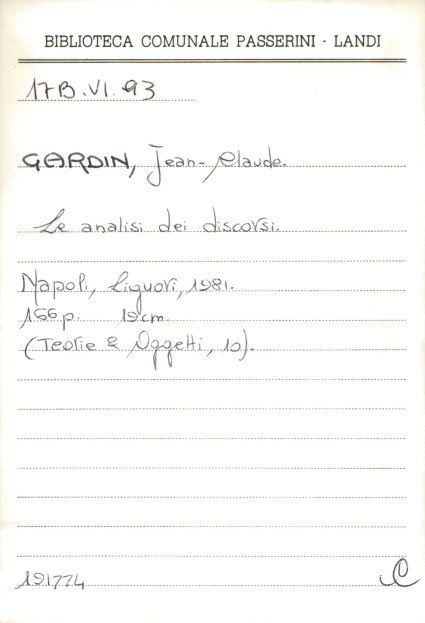 BIBLIOTECA COMUNALE PASSERINI - LANDI
17B.VI.93
GARDIN, Jean-Claude.
Le analisi dei discorsi.
Napoli, Liguori, 1981.
166 p. 19 cm.
(Teorie & Oggetti, 10).
191774 C